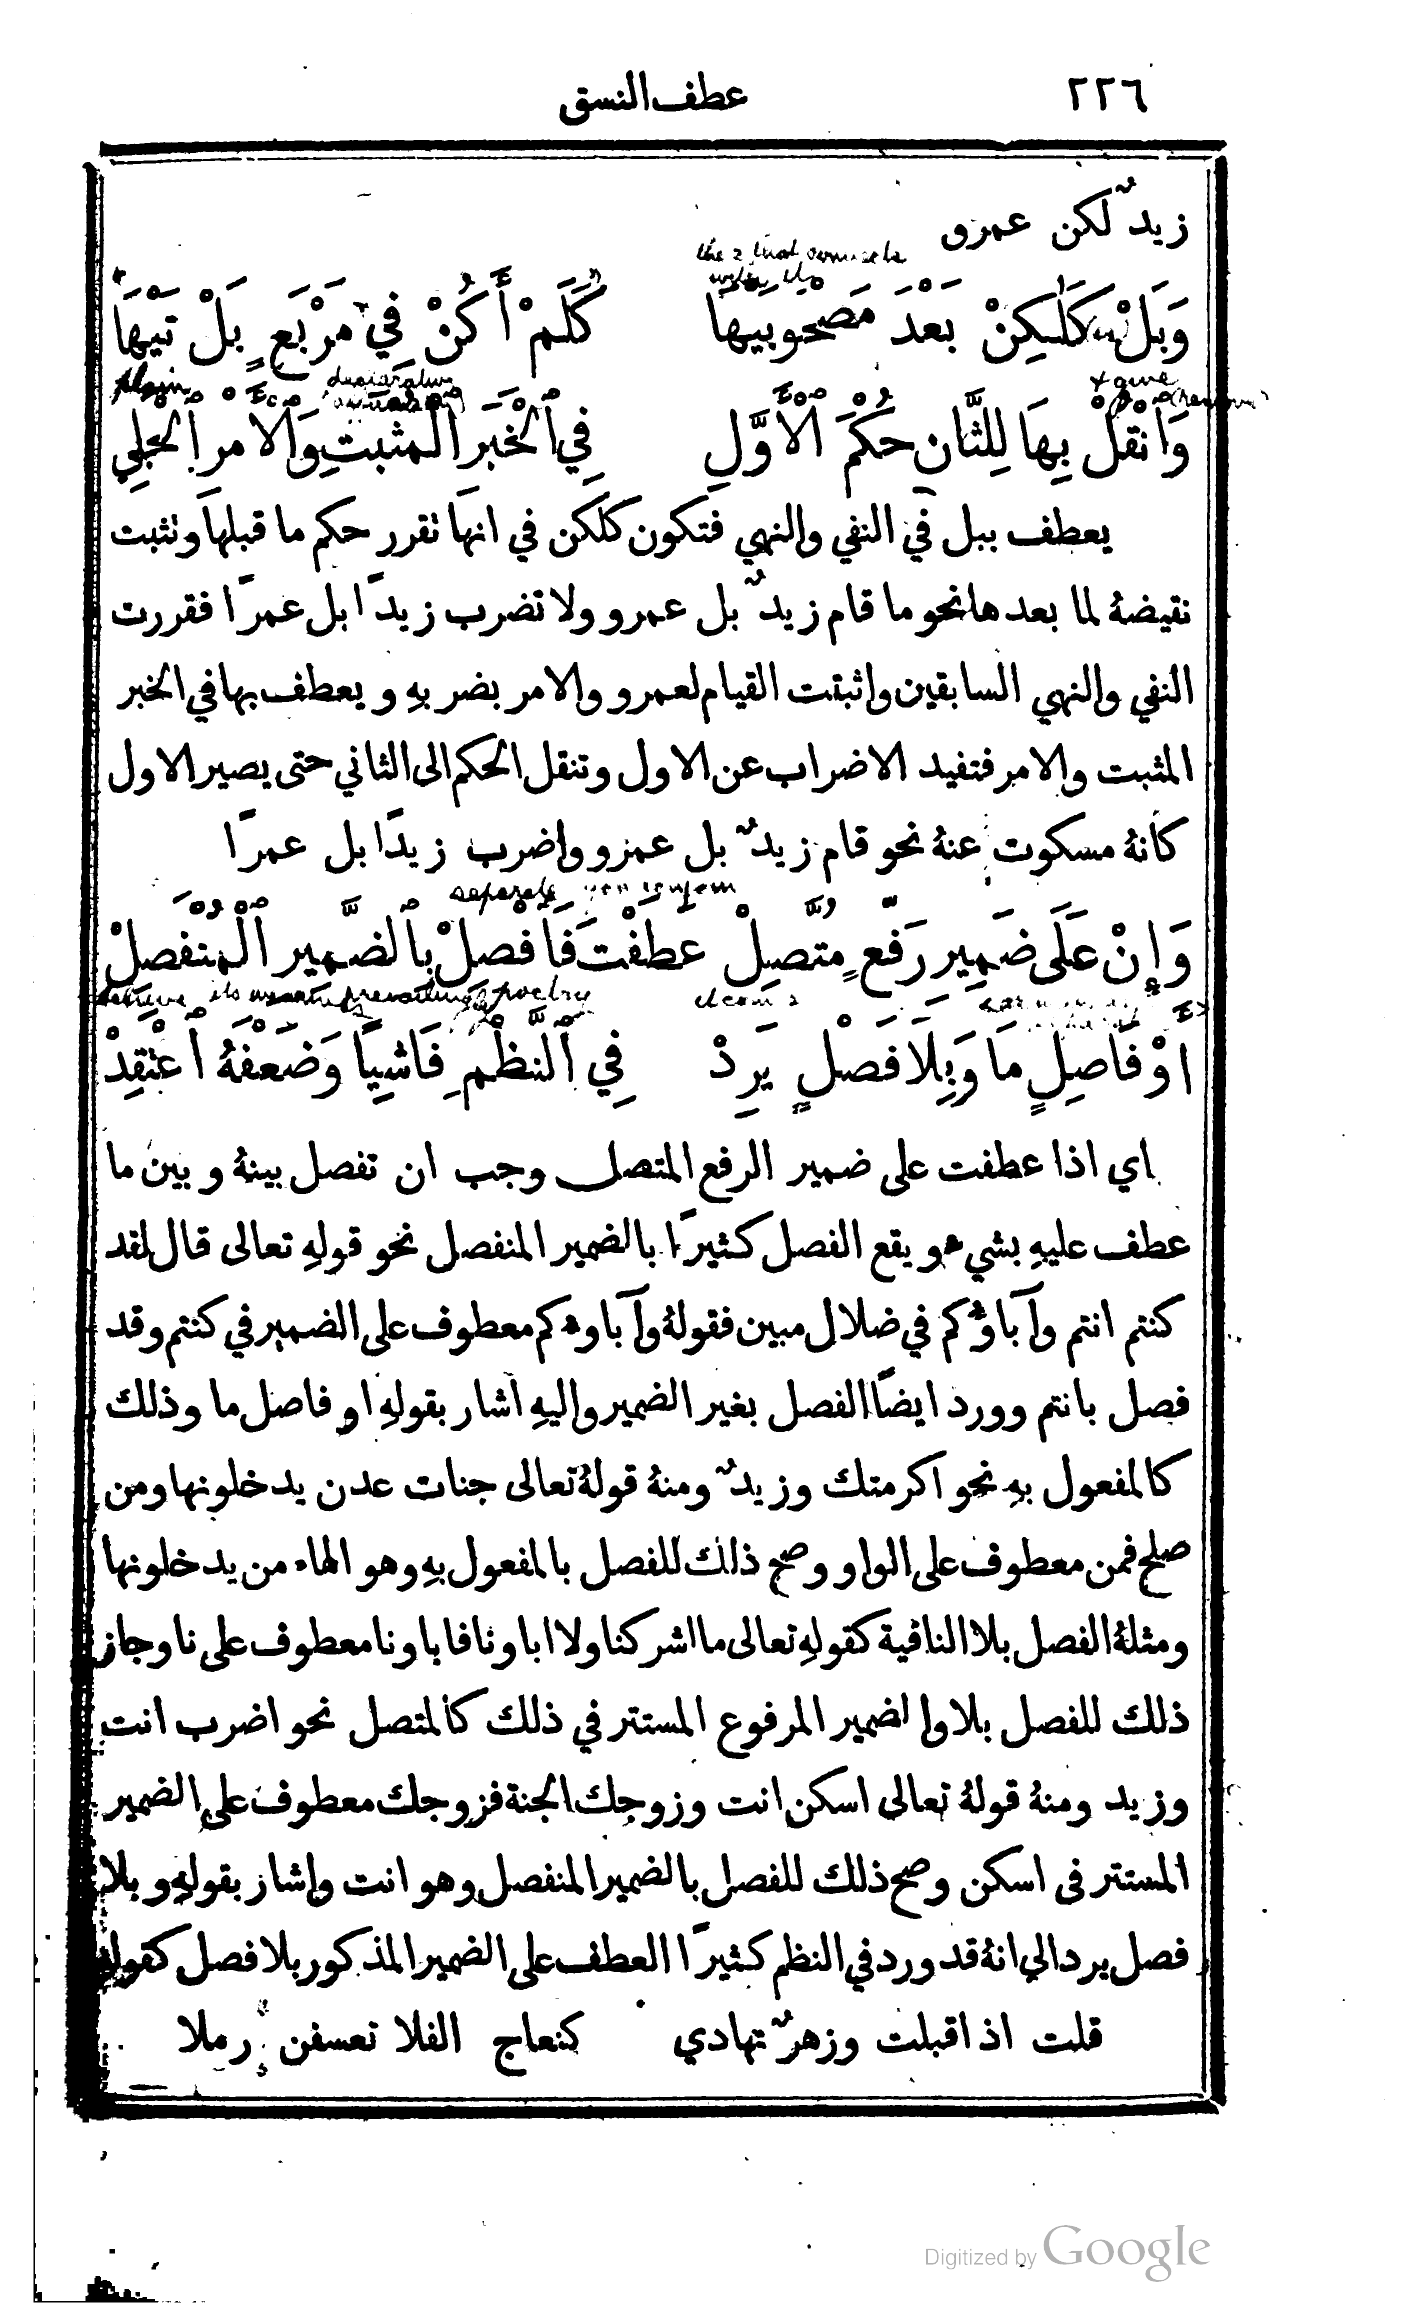 ٢٢٦ عطف النسق
زيدٌ لكن عمرو
the 2 that connects
with
وَبَلْ كَلٰكِنْ بَعْدَ مَصْحُوبَيْهَا كَلَمْ أَكُنْ فِي مَرْبَعٍ بَلْ تَيْهَا
plain declarative + give (remove)
وَٱنْقُلْ بِهَا لِلثَّانِ حُكْمَ ٱلْأَوَّلِ فِي ٱلْخَبَرِ ٱلْمُثْبَتِ وَٱلْأَمْرِ ٱلْجَلِي
يعطف ببل في النفي والنهي فتكون كلكن في انها تقرر حكم ما قبلها وتثبت
نقيضهُ لما بعدها نحو ما قام زيدٌ بل عمرو ولا تضرب زيدًا بل عمرًا فقررت
النفي والنهي السابقين واثبتت القيام لعمرو والامر بضربهِ ويعطف بها في الخبر
المثبت والامر فتفيد الاضراب عن الاول وتنقل الحكم الى الثاني حتى يصير الاول
كانهُ مسكوت عنهُ نحو قام زيدٌ بل عمرو واضرب زيدًا بل عمرًا
separate you conjoin
وَإِنْ عَلَى ضَمِيرِ رَفْعٍ مُتَّصِلْ عَطَفْتَ فَٱفْصِلْ بِٱلضَّمِيرِ ٱلْمُنْفَصِلْ
believe its prevailing poetry
أَوْ فَاصِلٍ مَا وَبِلَا فَصْلٍ يَرِدْ فِي ٱلنَّظْمِ فَاشِيًا وَضَعْفَهُ ٱعْتَقِدْ
اي اذا عطفت على ضمير الرفع المتصل وجب ان تفصل بينهُ وبين ما
عطف عليهِ بشيء ويقع الفصل كثيرًا بالضمير المنفصل نحو قولهِ تعالى قال لقد
كنتم انتم وآباؤكم في ضلال مبين فقولهُ وآباؤكم معطوف على الضمير في كنتم وقد
فصل بانتم وورد ايضًا الفصل بغير الضمير واليهِ اشار بقولهِ او فاصل ما وذلك
كالمفعول بهِ نحو اكرمتك وزيدٌ ومنهُ قولهُ تعالى جنات عدن يدخلونها ومن
صلح فمن معطوف على الواو وصح ذلك للفصل بالمفعول بهِ وهو الهاء من يدخلونها
ومثلهُ الفصل بلا النافية كقولهِ تعالى ما اشركنا ولا اباونا فاباونا معطوف على نا وجاز
ذلك للفصل بلا والضمير المرفوع المستتر في ذلك كالمتصل نحو اضرب انت
وزيد ومنهُ قولهُ تعالى اسكن انت وزوجك الجنة فزوجك معطوف على الضمير
المستتر في اسكن وصح ذلك للفصل بالضمير المنفصل وهو انت واشار بقولهِ وبلا
فصل يرد الى انهُ قد ورد في النظم كثيرًا العطف على الضمير المذكور بلا فصل كقولهِ
قلت اذ اقبلت وزهرٌ تهادي كنعاج الفلا تعسفن رملا
Digitized by Google